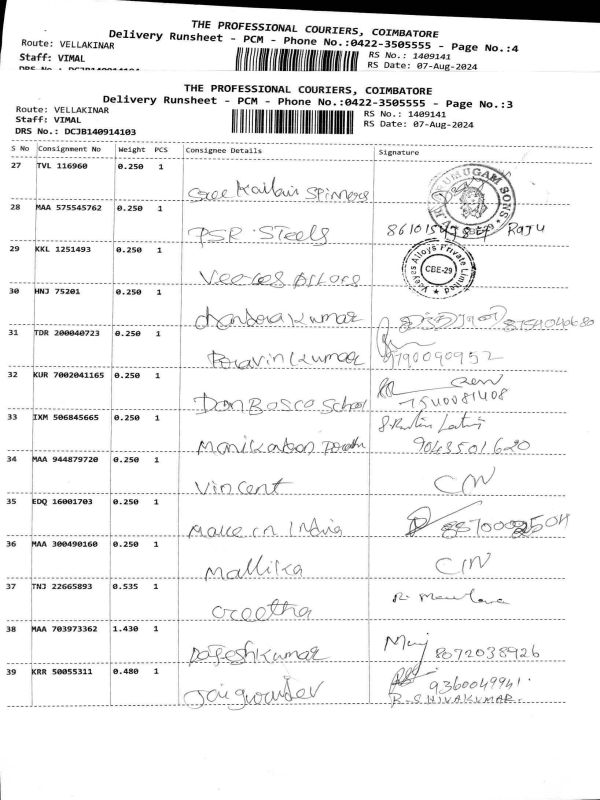 THE PROFESSIONAL COURIERS, COIMBATORE
Delivery Runsheet - PCM - Phone No.:0422-3505555 - Page No.:4
Route: VELLAKINAR
RS No.: 1409141
Staff: VIMAL
RS Date: 07-Aug-2024
THE PROFESSIONAL COURIERS, COIMBATORE
Delivery Runsheet - PCM - Phone No.:0422-3505555 - Page No.:3
Route: VELLAKINAR
RS No.: 1409141
Staff: VIMAL
RS Date: 07-Aug-2024
DRS No.: DCJB140914103
S No Consignment No Weight PCS Consignee Details Signature
27 TVL 116960 0.250 1
Sree Kailair Spinners
28 MAA 575545762 0.250 1
PSR Steels Raju
29 KKL 1251493 0.250 1
Veeyes Alloys Private Limited
CBE-29
30 HNJ 75201 0.250 1
Chandra Kumar 8754040680
31 TDR 200040723 0.250 1
Pravin Kumar 9790090952
32 KUR 7002041165 0.250 1
Don Bosco School 7540081408
33 IXM 506845665 0.250 1
9043501620
34 MAA 944879720 0.250 1
Vincent
35 EDQ 16001703 0.250 1
Make in India
36 MAA 300490160 0.250 1
Mallika
37 TNJ 22665893 0.535 1
Geetha
38 MAA 703973362 1.430 1
Rajeshkumar 8072038926
39 KRR 50055311 0.480 1
Jaigurudev 9360049941.
R. SHIVAKUMAR.